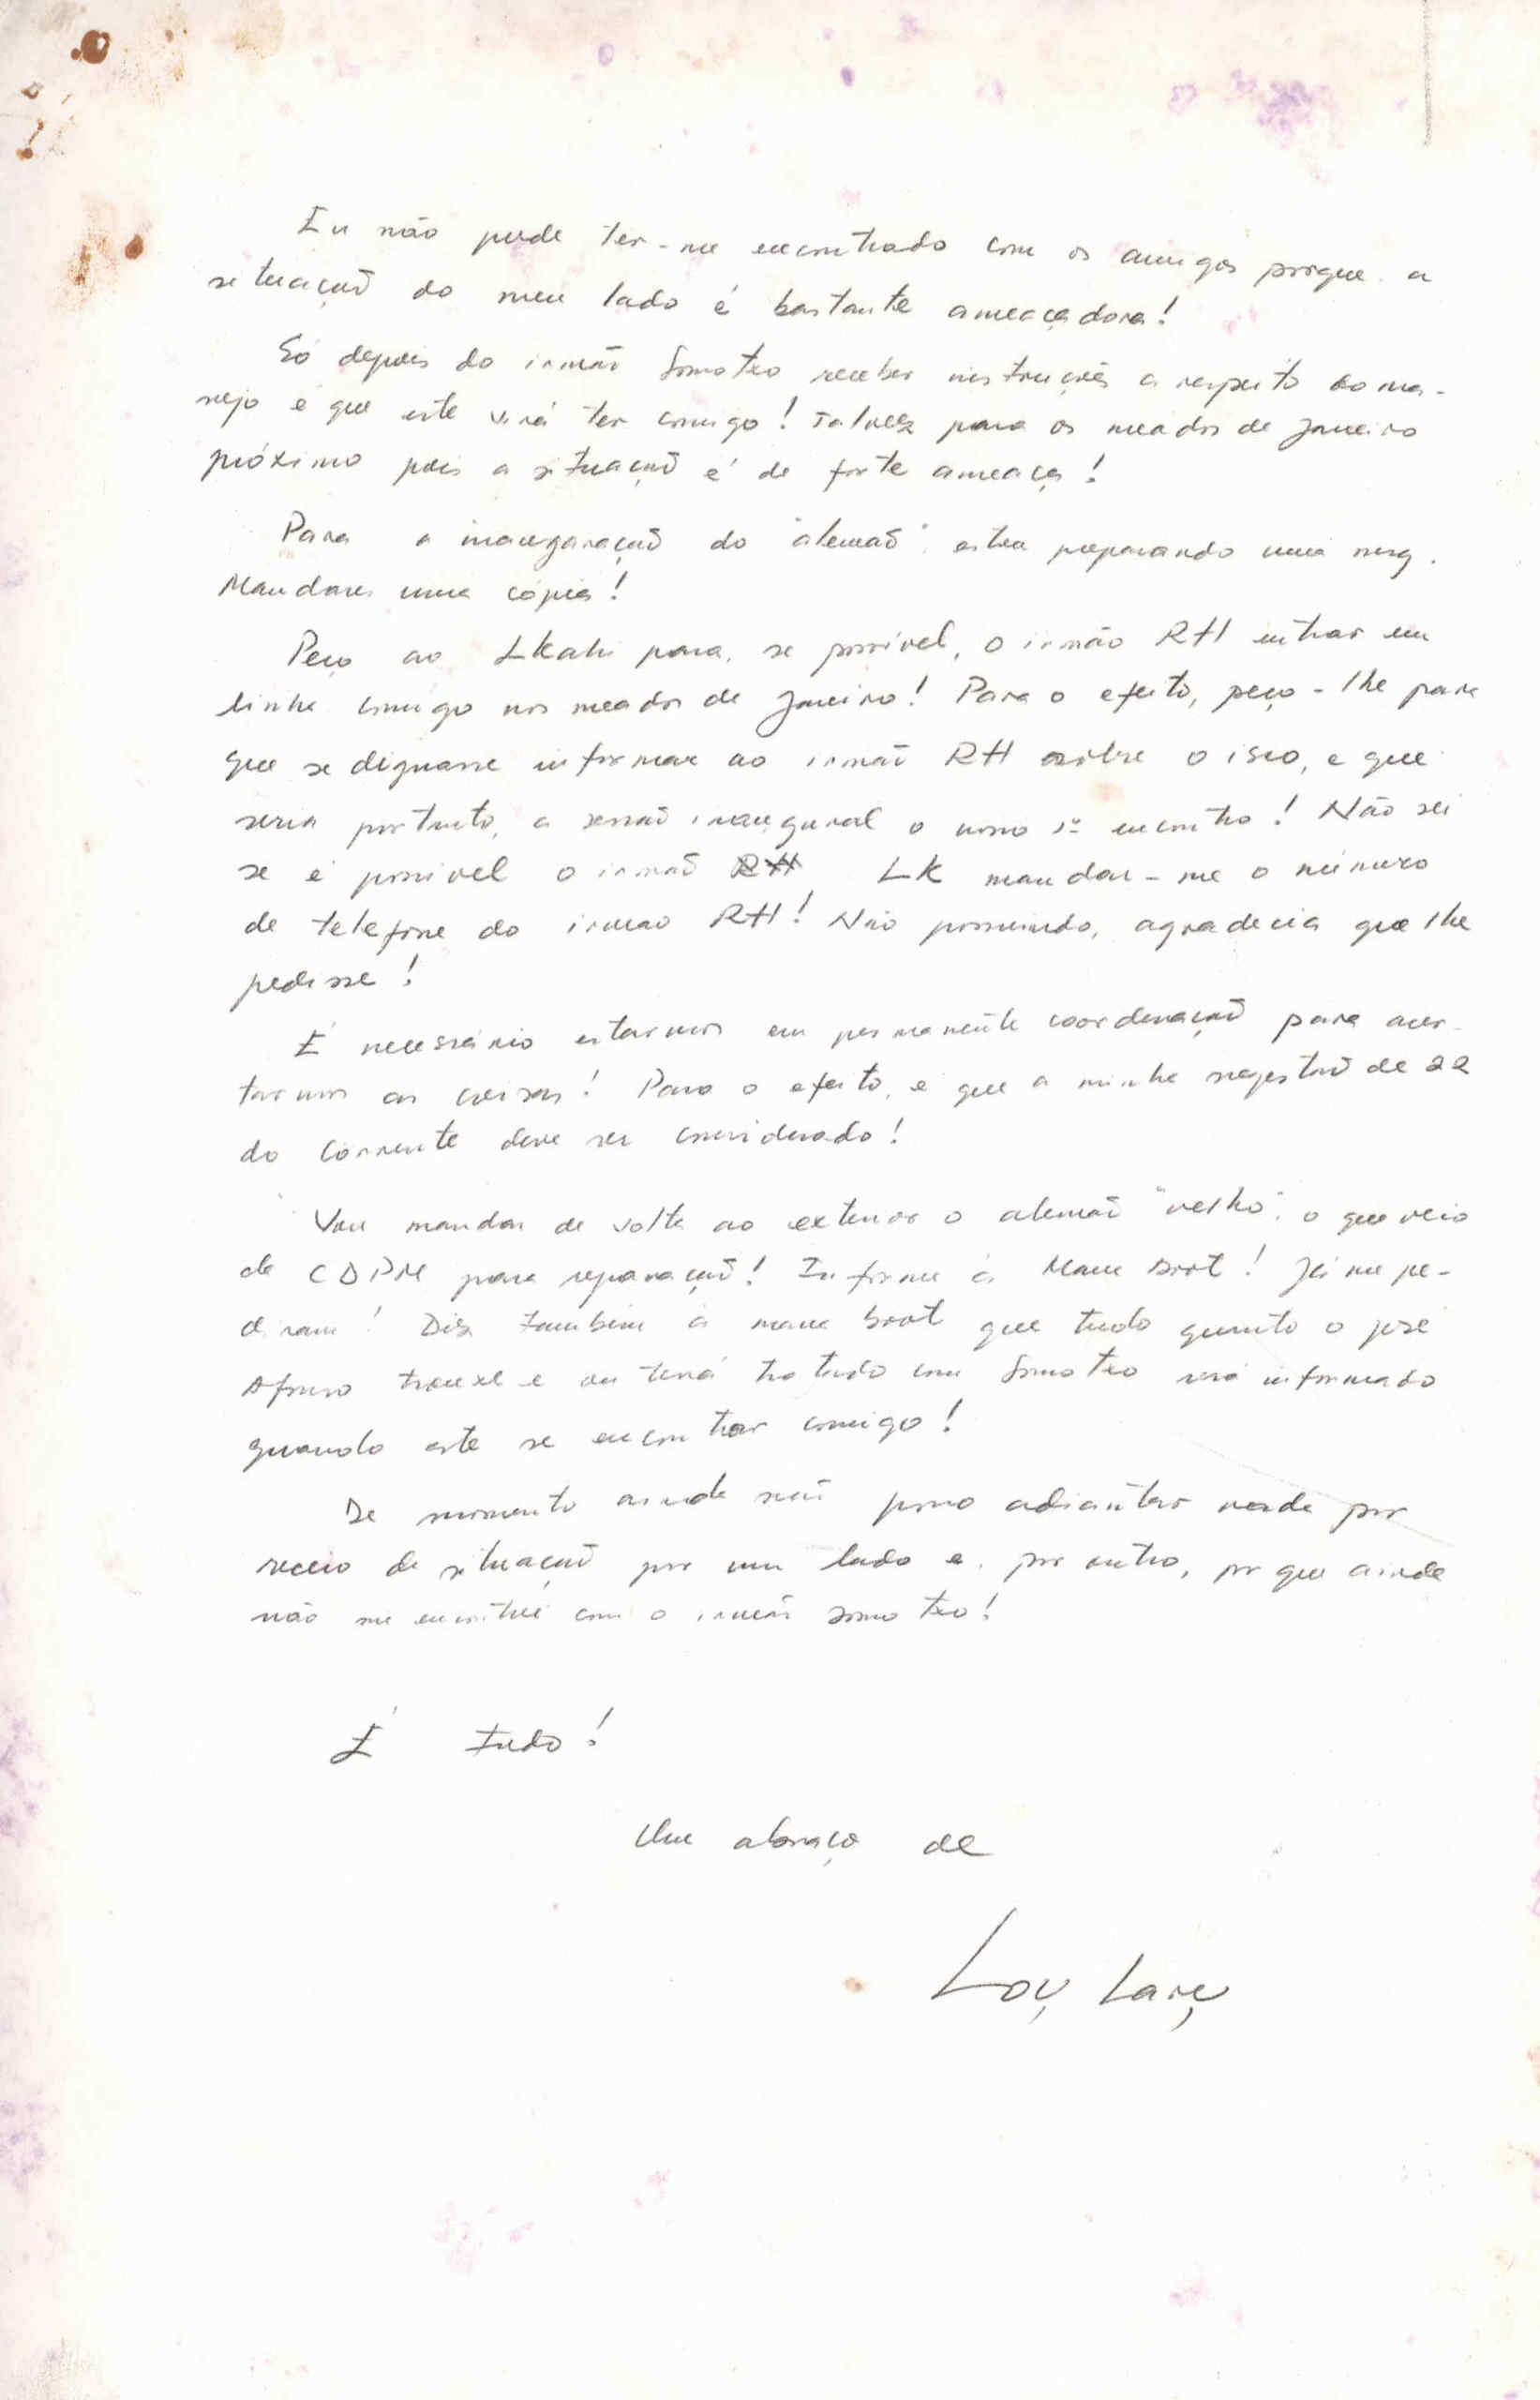 Eu não pude ter-me encontrado com os amigos porque a
situação do meu lado é bastante ameaçadora!
Só depois do irmão Somotxo receber instruções a respeito do ma-
nejo é que este virá ter comigo! Talvez para os meados de Janeiro
próximo pois a situação é de forte ameaça!
Para a inauguração do "alemão" estou preparando uma msg.
Mandarei uma cópia!
Peço ao Lkahi para, se possível, o irmão RH entrar em
linha comigo nos meados de Janeiro! Para o efeito, peço-lhe para
que se dignasse informar ao irmão RH sobre o isco, e que
seria portanto, a sessão inaugural o nosso 1º encontro! Não sei
se é possível o irmão RH LK mandar-me o número
de telefone do irmão RH! Não possuindo, agradecia que lhe
pedisse!
É necessário estarmos em permanente coordenação para acer-
tarmos as coisas! Para o efeito, é que a minha sugestão de 22
do corrente deve ser considerado!
Vou mandar de volta ao exterior o alemão "velho", o que veio
de CDPM para reparação! Informe à Mana Boot! Já me pe-
diram! Diz também à mana boot que tudo quanto o José
Afonso trouxe e ou terá tratado com Somotxo será informado
quando este se encontrar comigo!
De momento ainda não posso adiantar nada por
receio da situação por um lado e, por outro, porque ainda
não me encontrei com o irmão Somotxo!
É tudo!
Um abraço de